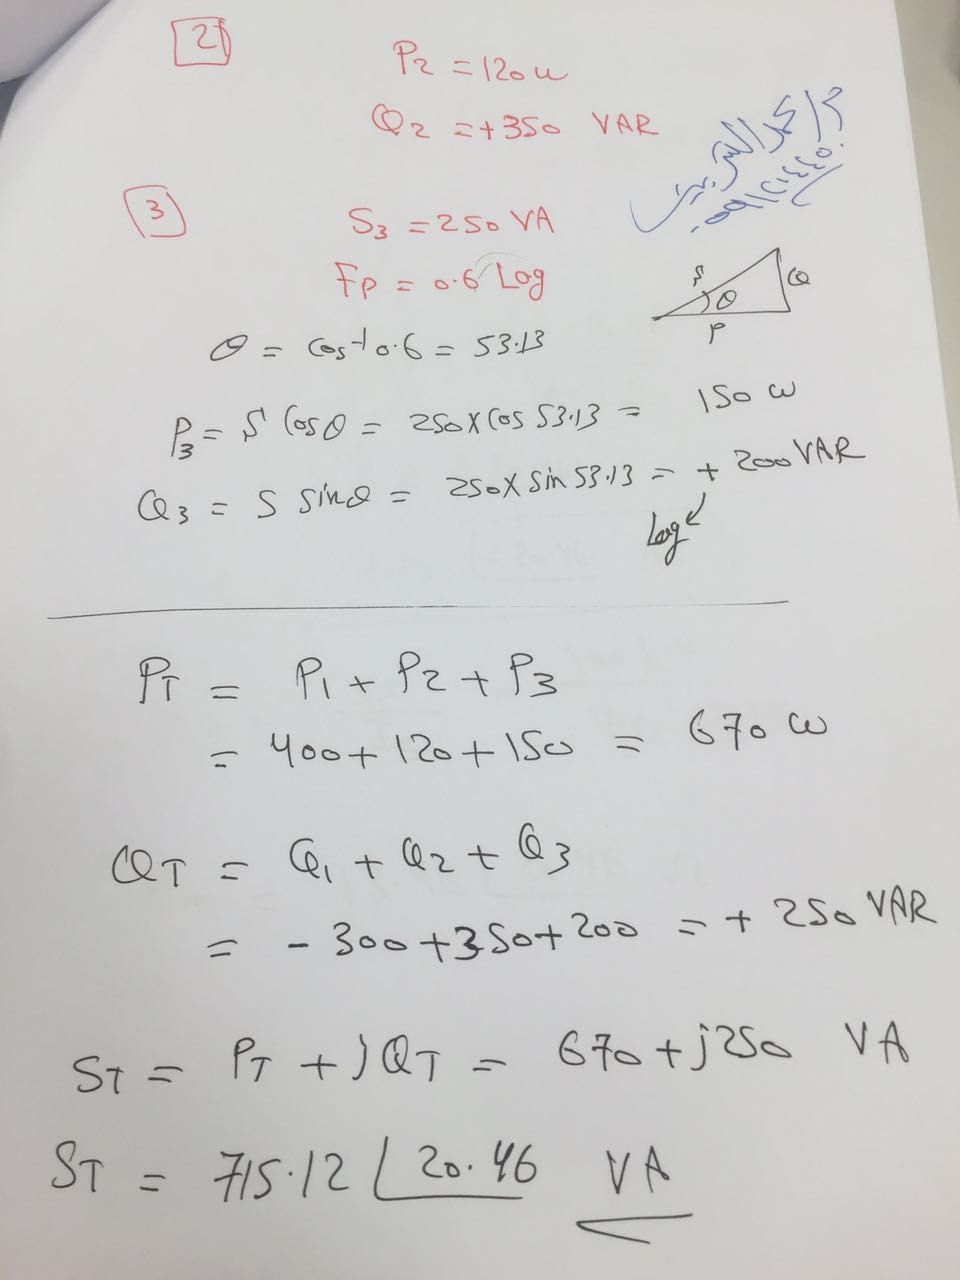 2
P2 = 120 w
Q2 = +350 VAR
م/محمد
3
S3 = 250 VA
Fp = 0.6 Lag
S
θ
Q
P
θ = Cos-1 0.6 = 53.13
P3 = S Cosθ = 250 x Cos 53.13 = 150 w
Q3 = S sinθ = 250 x sin 53.13 = + 200 VAR
Lag
PT = P1 + P2 + P3
= 400 + 120 + 150 = 670 w
QT = Q1 + Q2 + Q3
= - 300 + 350 + 200 = + 250 VAR
ST = PT + jQT = 670 + j250 VA
ST = 715.12 ∠20.46 VA